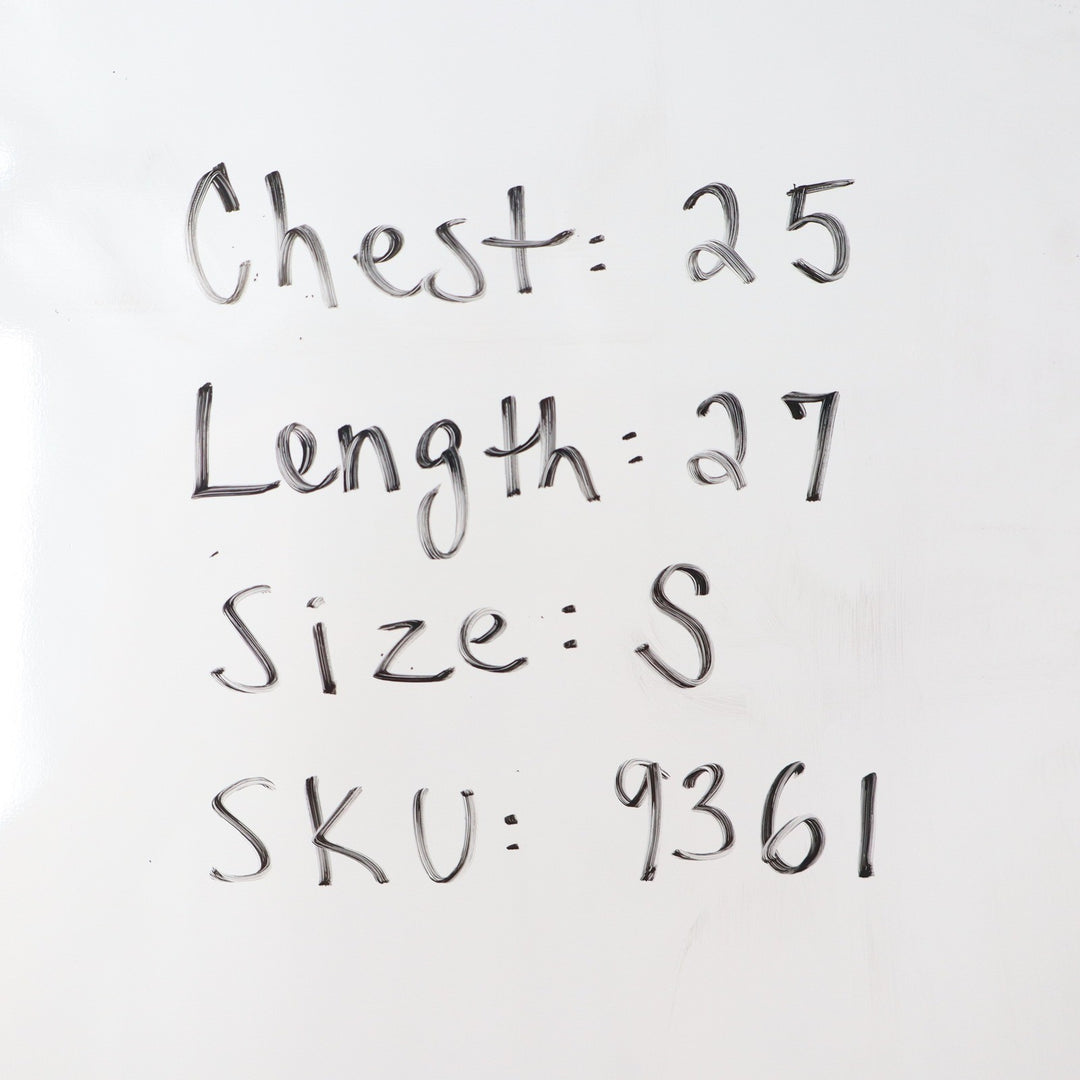 Chest: 25
Length: 27
Size: S
SKU: 9361